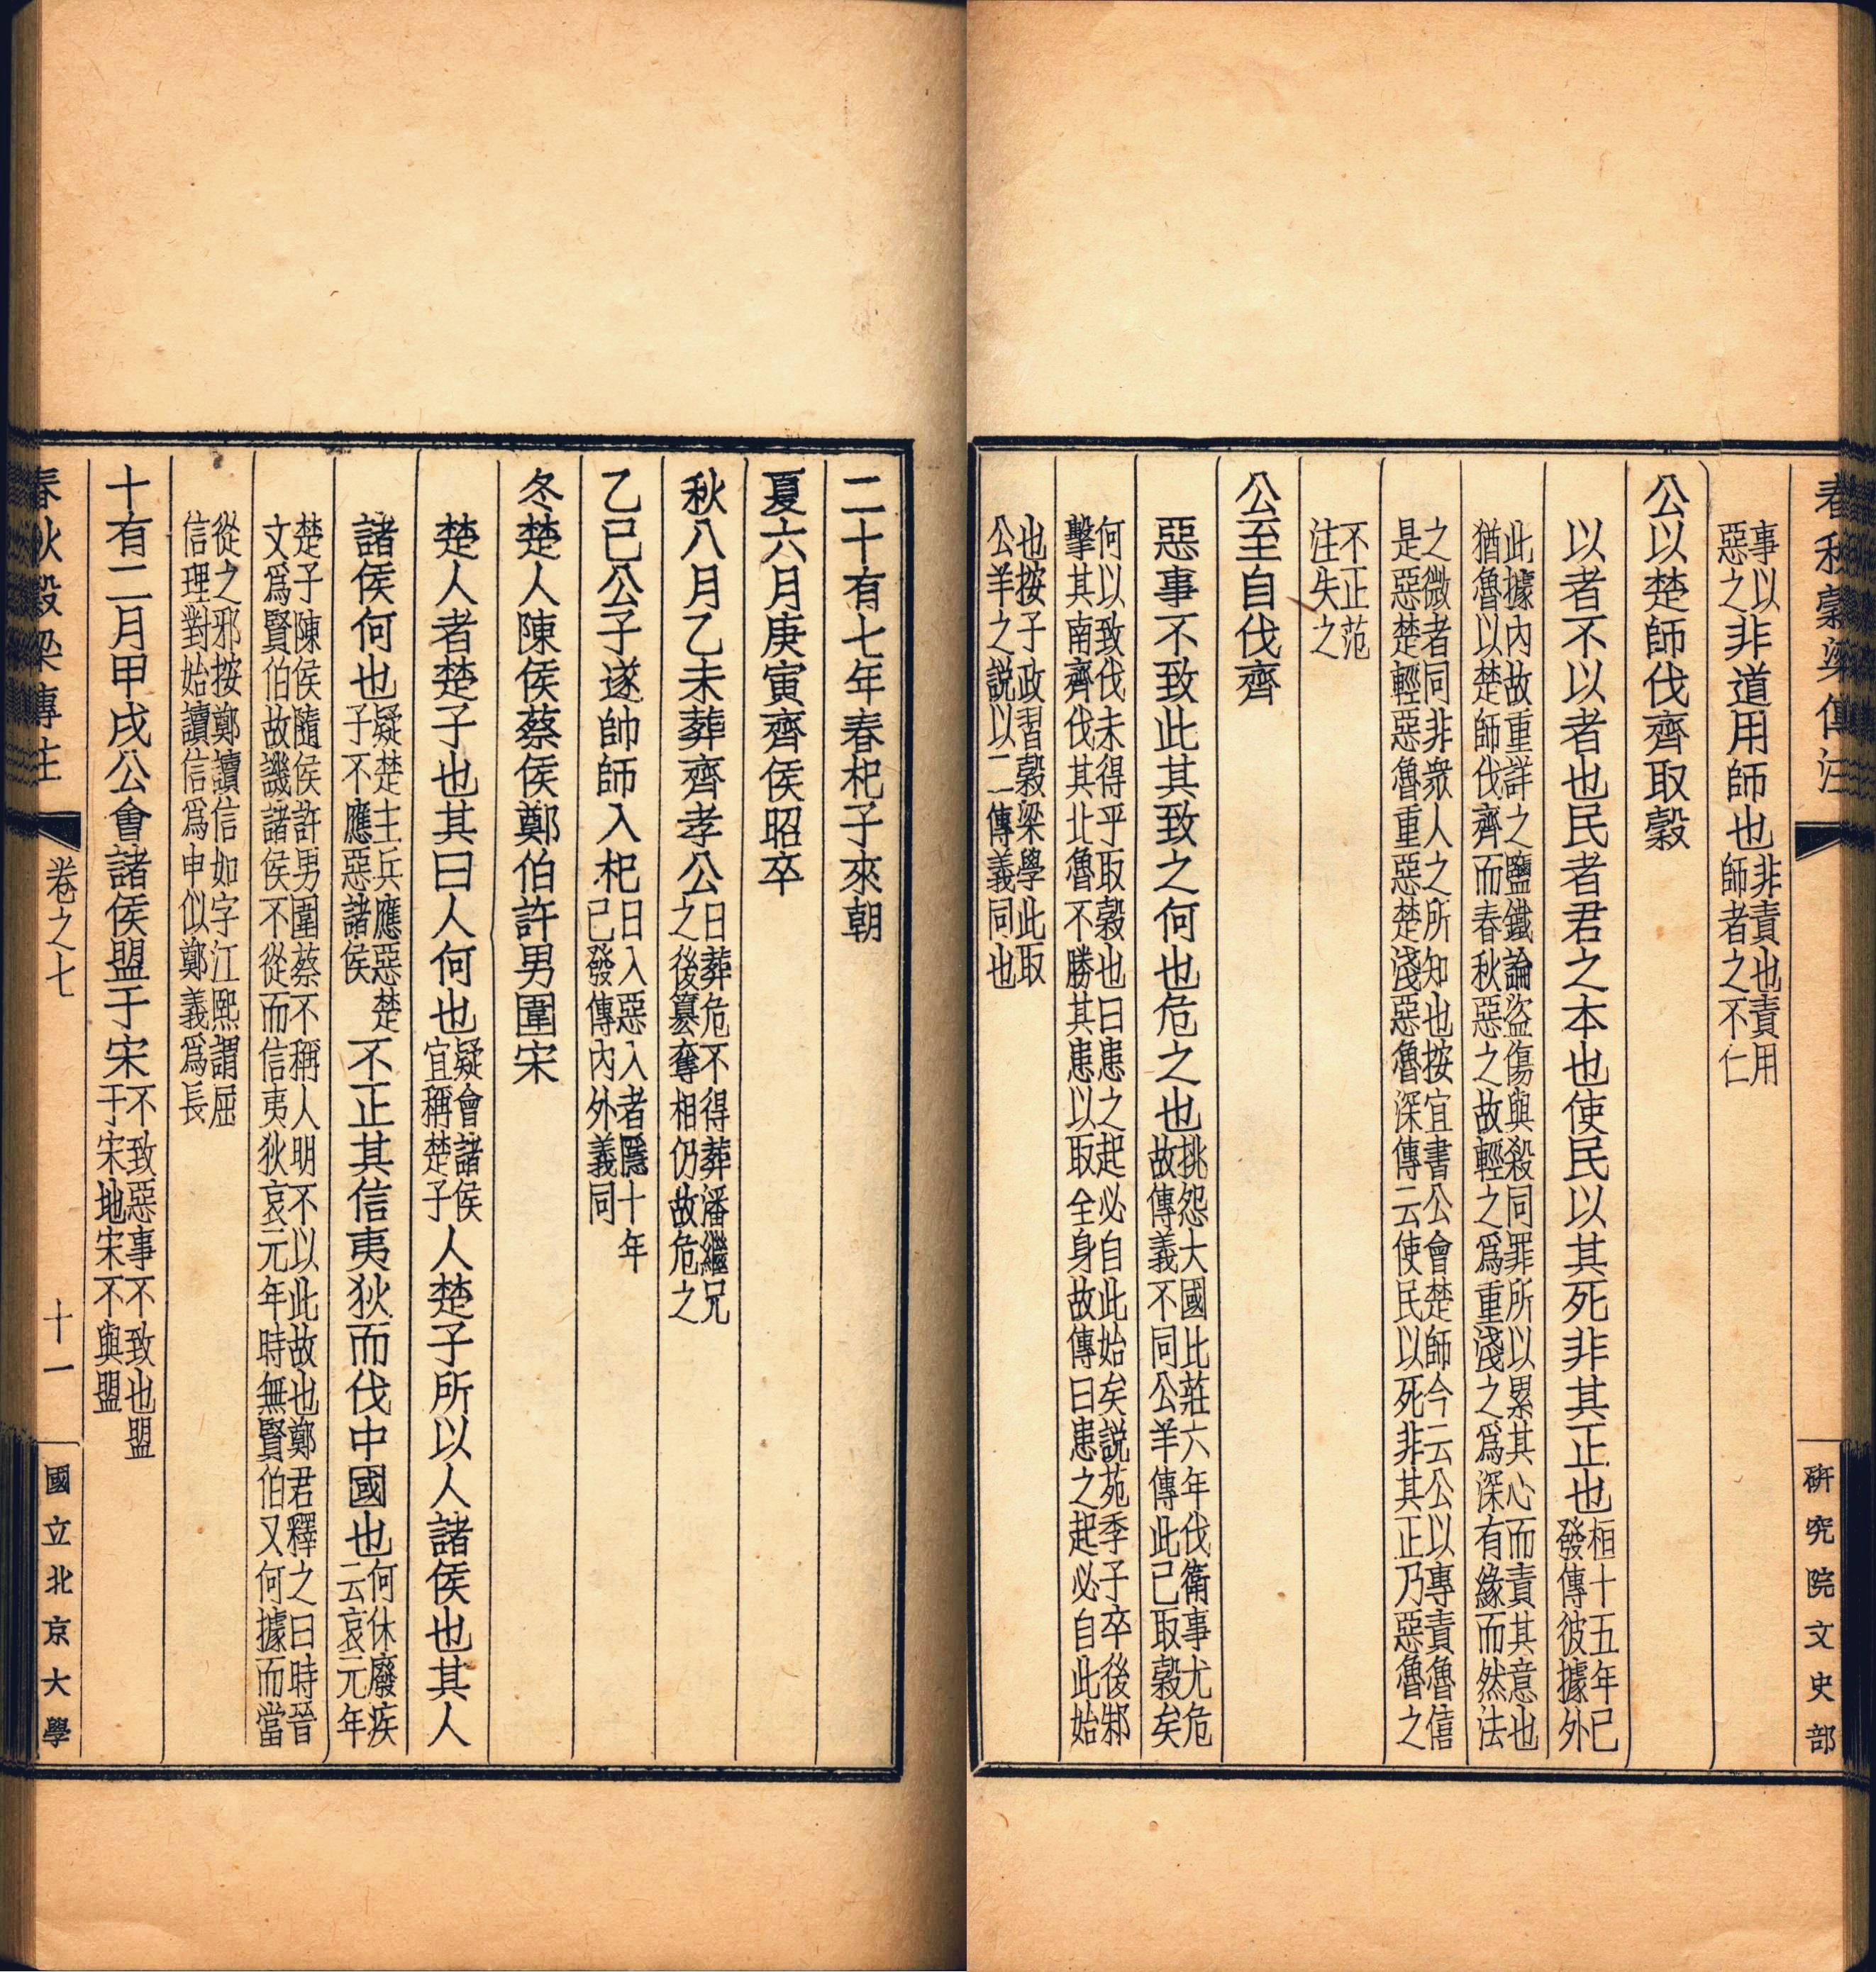 春秋穀梁傳注
研究院文史部
事以惡之非道用師也非責也責用師者之不仁
公以楚師伐齊取穀
以者不以者也民者君之本也使民以其死非其正也桓十五年已發傳彼據外
此據內故重詳之鹽鐵論盜傷與殺同罪所以累其心而責其意也
猶魯以楚師伐齊而春秋惡之故輕之爲重淺之爲深有緣而然法
之微者同非衆人之所知也按宜書公會楚師今云公以專責魯僖
是惡楚輕惡魯重惡楚淺惡魯深傳云使民以死非其正乃惡魯之
不正范
注失之
公至自伐齊
惡事不致此其致之何也危之也挑怨大國比莊六年伐衛事尤危故傳義不同公羊傳此已取穀矣
何以致伐未得乎取穀也曰患之起必自此始矣説苑季子卒後邾
擊其南齊伐其北魯不勝其患以取全身故傳曰患之起必自此始
也按子政習穀梁學此取
公羊之説以二傳義同也
二十有七年春杞子來朝
夏六月庚寅齊侯昭卒
秋八月乙未葬齊孝公日葬危不得葬潘繼兄之後篡奪相仍故危之
乙巳公子遂帥師入杞日入惡入者隱十年已發傳內外義同
冬楚人陳侯蔡侯鄭伯許男圍宋
楚人者楚子也其曰人何也疑會諸侯宜稱楚子人楚子所以人諸侯也其人
諸侯何也疑楚主兵應惡楚子不應惡諸侯不正其信夷狄而伐中國也何休廢疾云哀元年
楚子陳侯隨侯許男圍蔡不稱人明不以此故也鄭君釋之曰時晉
文爲賢伯故譏諸侯不從而信夷狄哀元年時無賢伯又何據而當
從之邪按鄭讀信如字江熙謂屈
信理對始讀信爲申似鄭義爲長
十有二月甲戌公會諸侯盟于宋不致惡事不致也盟于宋地宋不與盟
春秋穀梁傳注
卷之七
十一
國立北京大學